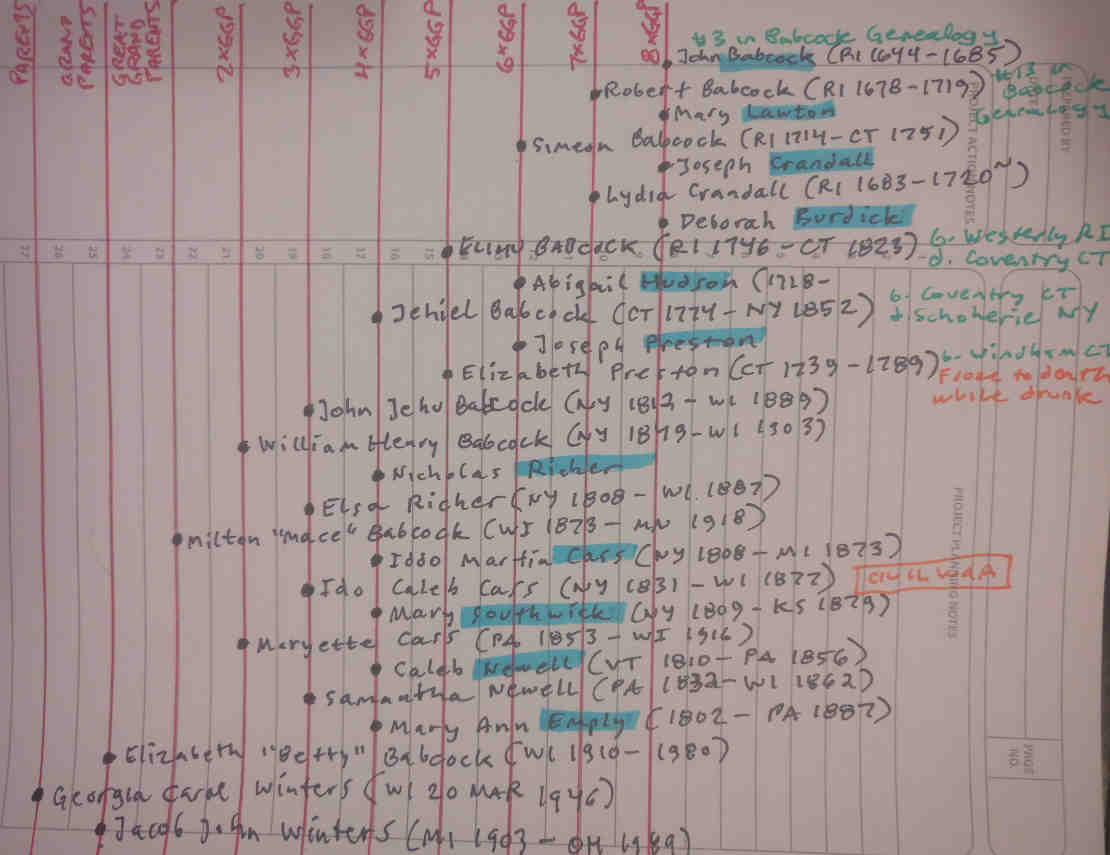 PARENTS
GRAND PARENTS
GREAT GRAND PARENTS
2xGGP
3xGGP
4xGGP
5xGGP
6xGGP
7xGGP
8xGGP
#3 in Babcock Genealogy
John Babcock (RI 1644-1685)
Robert Babcock (RI 1678-1719) #13 in Babcock Genealogy
Mary Lawton
Simeon Babcock (RI 1714-CT 1751)
Joseph Crandall
Lydia Crandall (RI 1683-1720~)
Deborah Burdick
ELIHU BABCOCK (RI 1746-CT 1823) b. Westerly RI
d. Coventry CT
Abigail Hudson (1728-
b. Coventry CT
Jehiel Babcock (CT 1774-NY 1852) d Schoherie NY
Joseph Preston
Elizabeth Preston (CT 1739-1789) b. Windham CT
Froze to death
while drunk
John Jehu Babcock (NY 1812-WI 1889)
William Henry Babcock (NY 1849-WI 1903)
Nicholas Richer
Elsa Richer (NY 1808-WI 1887)
Milton "Mace" Babcock (WI 1873-MN 1918)
Iddo Martin Cass (NY 1808-MI 1873)
Ido Caleb Cass (NY 1831-WI 1877) CIVIL WAR
Mary Southwick (NY 1809-KS 1879)
Maryette Cass (PA 1853-WI 1916)
Caleb Newell (VT 1810-PA 1856)
Samantha Newell (PA 1832-WI 1862)
Mary Ann Emply (1802-PA 1887)
Elizabeth "Betty" Babcock (WI 1910-1980)
Georgia Carol Winters (WI 20 MAR 1946)
Jacob John Winters (MI 1903-OH 1989)
PROJECT ACTION NOTES
PREPARED BY
DATE
PROJECT PLANNING NOTES
PAGE NO.
27 26 25 24 23 22 21 20 19 18 17 16 15